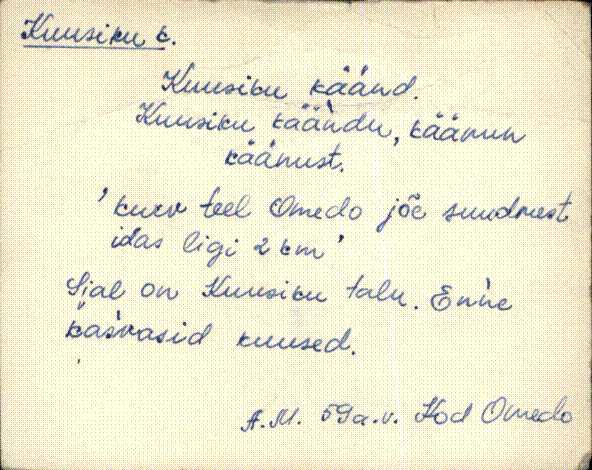 Kuusiku k.
Kuusiku käänd.
Kuusiku käändu, käänun
käänust.
'kurv teel Omedo jõe suudmest
idas ligi 2 km'
Sial on Kuusiku talu. Enne
kasvasid kuused.
A.M. 59 a.v. Kod Omedo